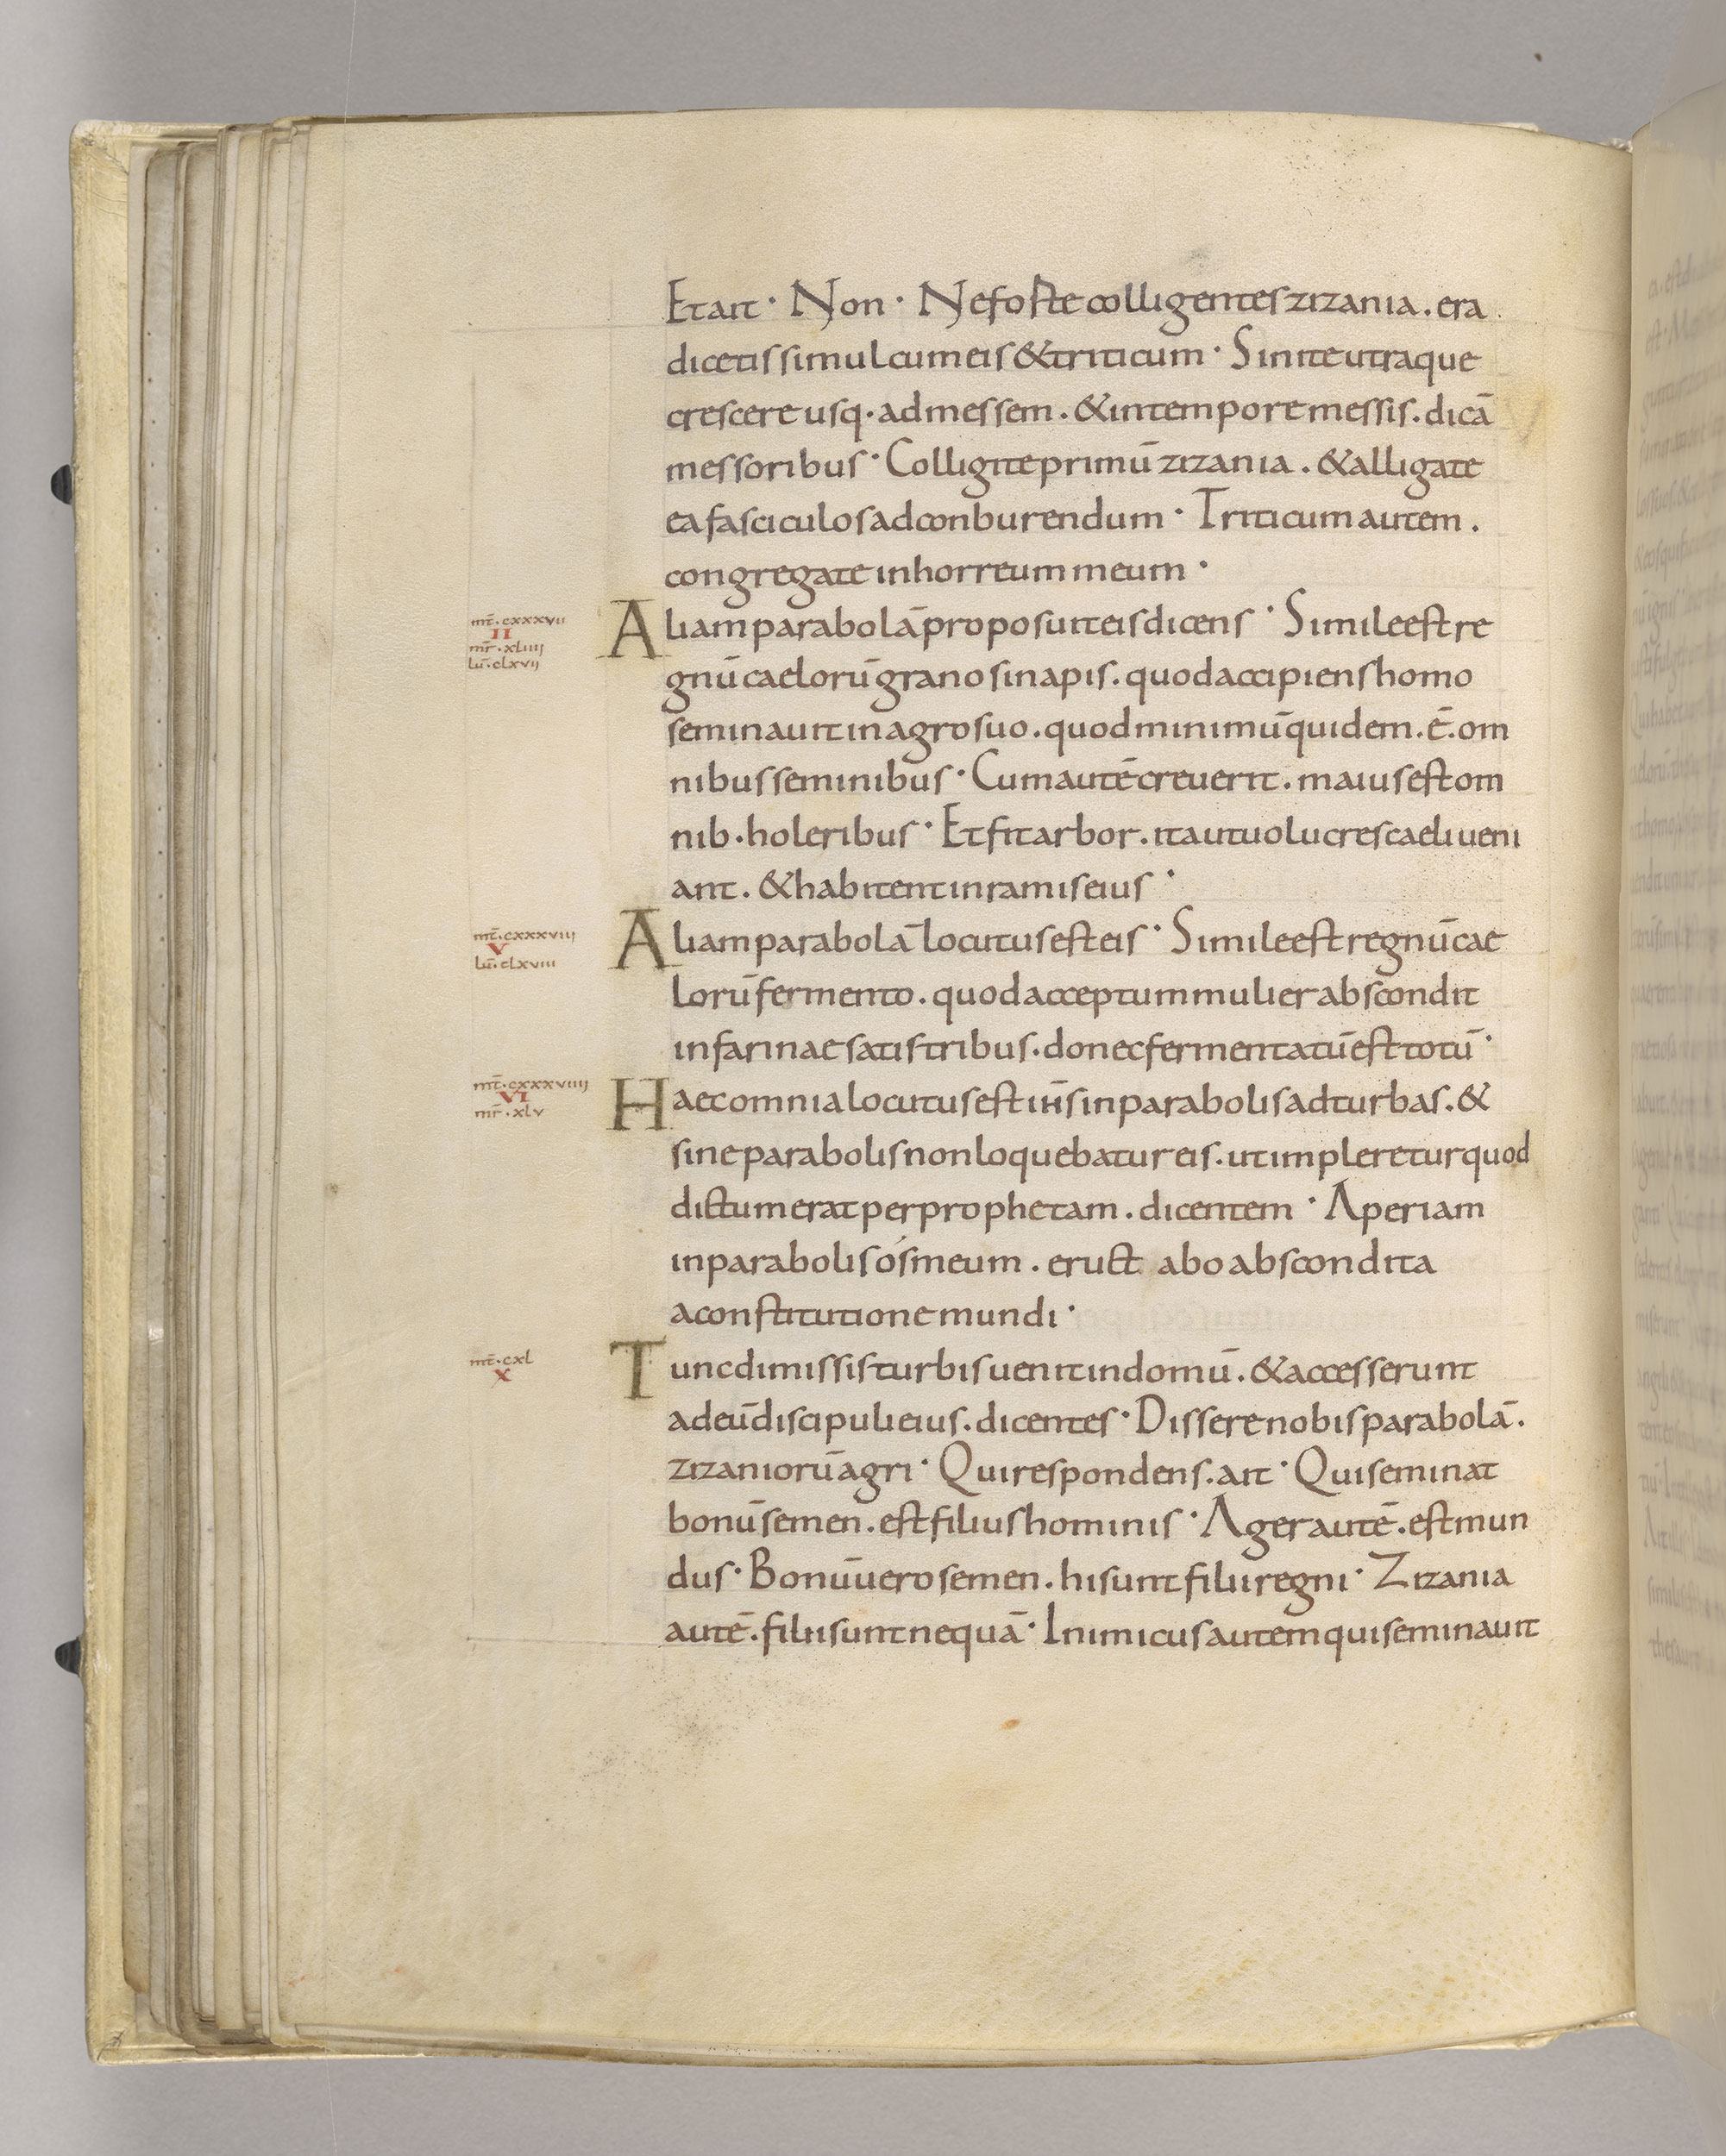 Et ait · Non · Ne foste colligentes zizania . era
dicetis simul cum eis & triticum · Sinite utraque
crescere usq· ad messem . & in tempore messis . dicā
messoribus · Colligite primū zizania . & alligate
ea fasciculos ad conburendum · Triticum autem .
congregate in horreum meum ·
mt̄ . cxxxvii
II
mr̄ . xliiij
lū . clxvij
Aliam parabolā proposuit eis dicens · Simile est re
gnū caelorū grano sinapis . quod accipiens homo
seminauit in agro suo . quod minimū quidem . ē . om
nibus seminibus · Cum autē creuerit . maius est om
nib· holeribus · Et fit arbor . ita ut uolucres caeli ueni
ant . & habitent in ramis eius ·
mt̄ . cxxxviij
V
lū . clxviii
Aliam parabolā locutus est eis · Simile est regnū cae
lorū fermento . quod acceptum mulier abscondit
in farinae satis tribus . donec fermentatū est totū ·
mt̄ . cxxxviiij
VI
mr̄ . xlv
Haec omnia locutus est ih̄s in parabolis ad turbas . &
sine parabolis non loquebatur eis . ut impleretur quod
dictum erat per prophetam . dicentem · Aperiam
in parabolis ós meum . eruct abo abscondita
a constitutione mundi ·
mt̄ . cxl
X
Tunc dimissis turbis uenit in domū . & accesserunt
ad eū discipuli eius . dicentes · Dissere nobis parabolā .
zizaniorū agri · Qui respondens . ait · Qui seminat
bonū semen . est filius hominis · Ager autē . est mun
dus · Bonū uero semen . hi sunt filii regni · Zizania
autē . filii sunt nequā · Inimicus autem qui seminauit